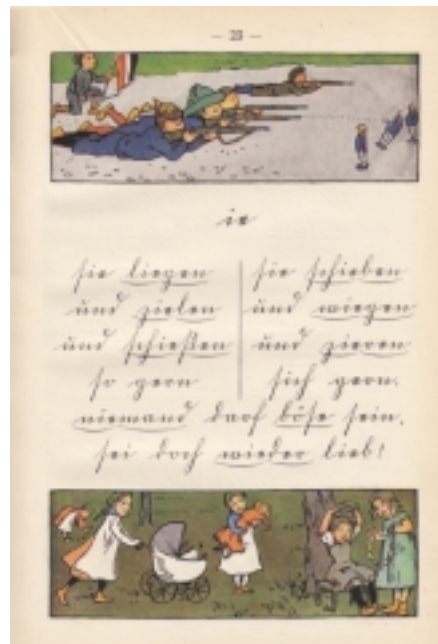 — 23 —
ie
sie liegen
und zielen
und schießen
so gern
sie schieben
und wiegen
und zieren
sich gern.
niemand darf böse sein,
sei doch wieder lieb!